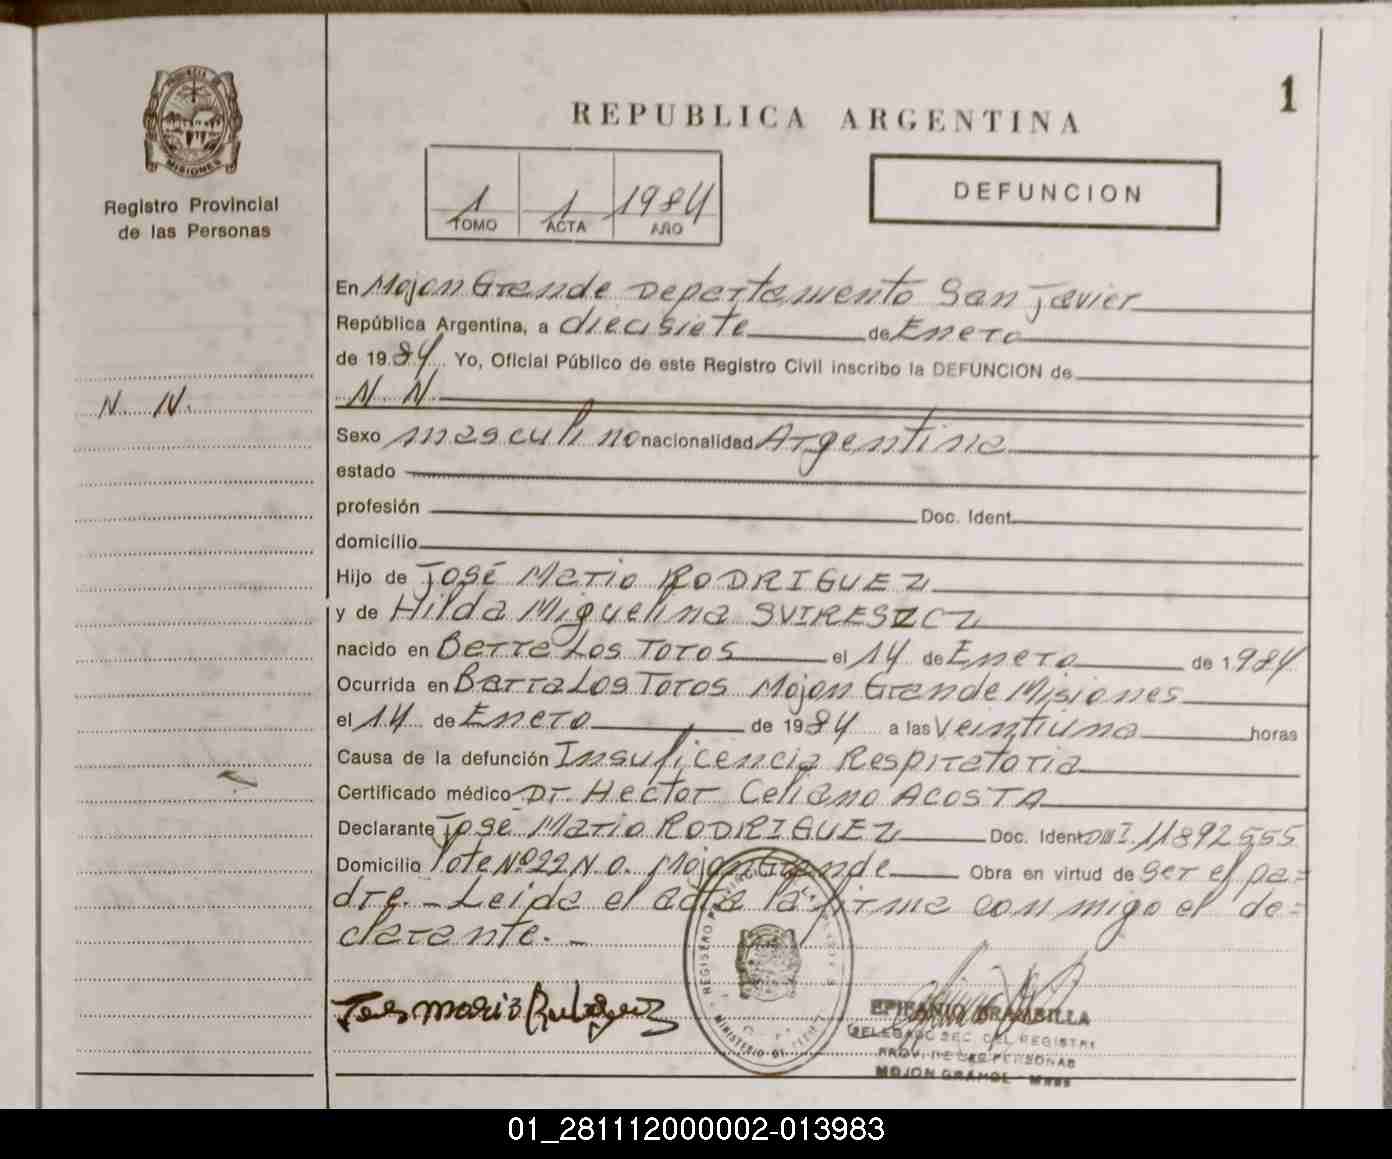 1
PROVINCIA DE
MISIONES
Registro Provincial
de las Personas
REPUBLICA ARGENTINA
1 1 1984
TOMO ACTA AÑO
DEFUNCION
N. N.
En Mojon Grande Departamento San Javier
República Argentina, a diecisiete de Enero
de 1984 Yo, Oficial Público de este Registro Civil inscribo la DEFUNCION de
N. N.
Sexo masculino nacionalidad Argentina
estado
profesión Doc. Ident.
domicilio
Hijo de José Mario RODRIGUEZ
y de Hilda Miguelina SVIRESZCZ
nacido en Barra Los Toros el 14 de Enero de 1984
Ocurrida en Barra Los Toros Mojon Grande Misiones
el 14 de Enero de 1984 a las Veintiuna horas
Causa de la defunción Insuficencia Respiratoria
Certificado médico Dr. Hector Celiano ACOSTA
Declarante José Mario RODRIGUEZ Doc. Ident DNI. 11892555
Domicilio lote Nº 22 N.O. Mojon Grande Obra en virtud de ser el pa=
dre. - Leida el acta la firma conmigo el de=
clarante. -
EPIFANIO BRAMBILLA
DELEGADO SEC. DEL REGISTR
PROV. DE LAS PERSONAS
MOJON GRANDE - Mnes
MINISTERIO DE
01_281112000002-013983